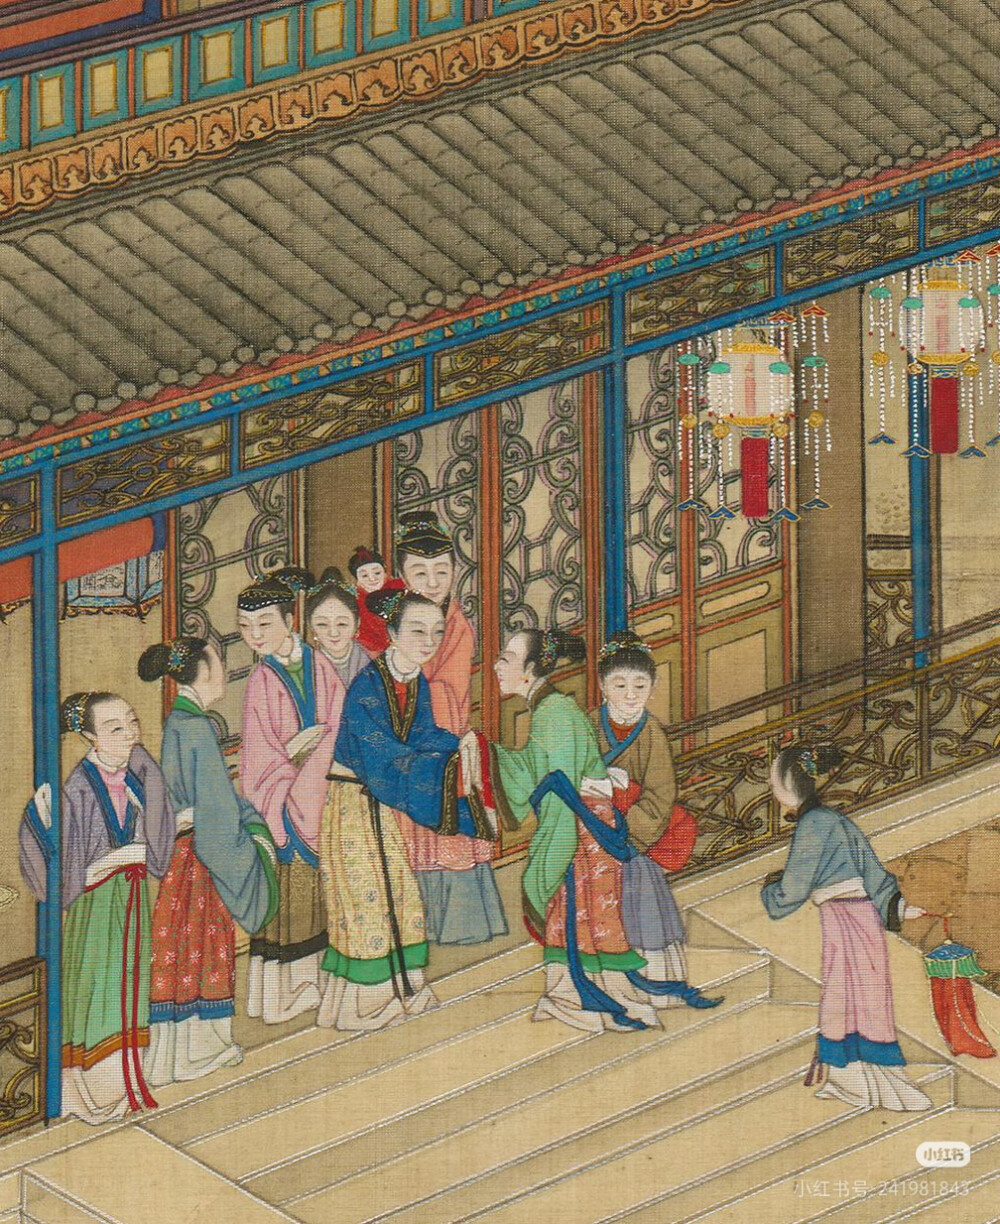 小红书
小红书号: 241981843